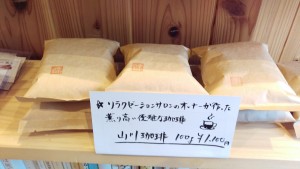 ☆ リラクゼーションサロンのオーナーが作った
薫り高い優雅な珈琲
山川珈琲 100g ¥1,100円